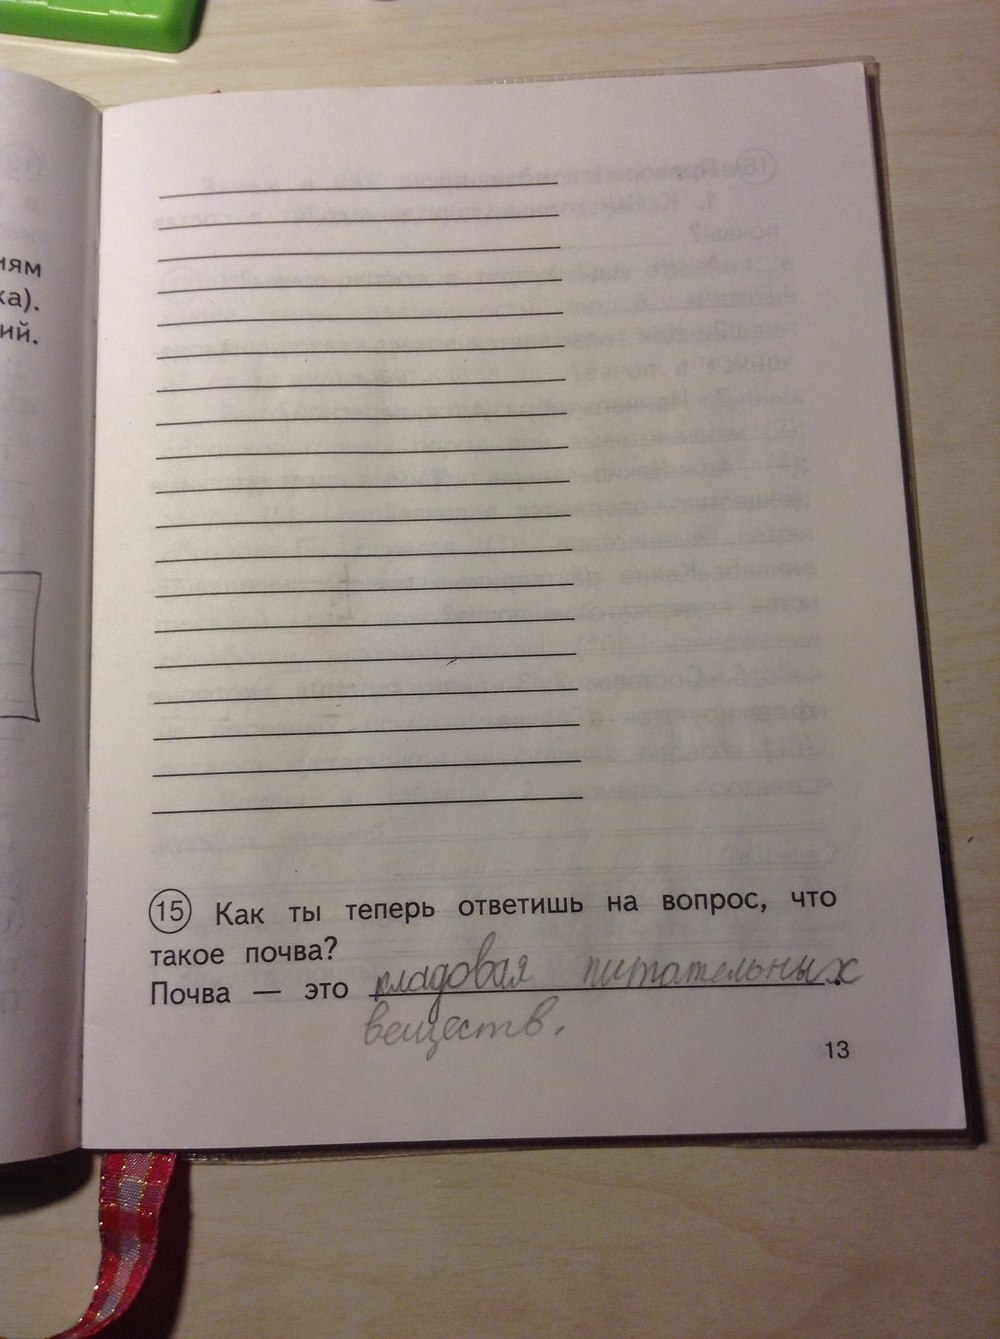 иям
ка).
ий.
15 Как ты теперь ответишь на вопрос, что
такое почва?
Почва — это кладовая питательных
веществ.
13